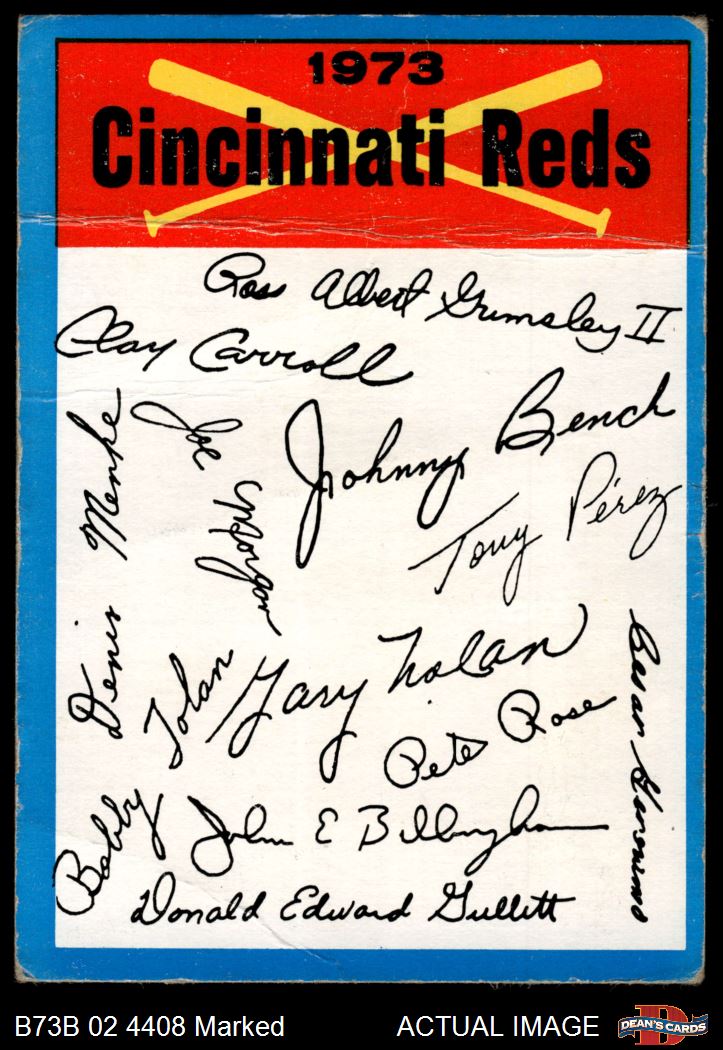 1973
Cincinnati Reds
Ross Albert Grimsley II
Clay Carroll
Johnny Bench
Denis Menke
Joe Morgan
Tony Pérez
Cesar Geronimo
Gary Nolan
Bobby Tolan
Pete Rose
John E Billingham
Donald Edward Gullett
B73B 02 4408 Marked
ACTUAL IMAGE
D
DEAN'S CARDS